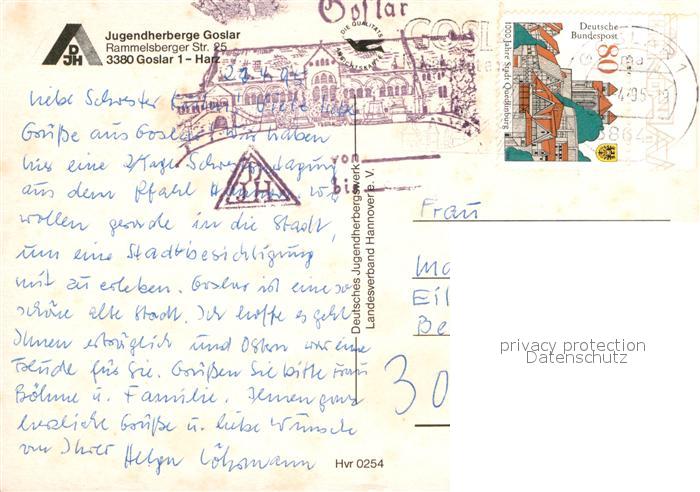 Goslar
DIE QUALITÄTS
ANSICHTSKARTE
DJH
Jugendherberge Goslar
Rammelsberger Str. 25
3380 Goslar 1 – Harz
GOSL
Deutsche
Bundespost
80
1000 Jahre Stadt Quedlinburg
liebe Schwester
Viele liebe
Grüße aus Goslar! Wir haben
hier eine Tagung
aus dem wir
wollen gerade in die Stadt,
um eine Stadtbesichtigung
mit zu erleben. Goslar ist eine so
schöne alte Stadt. Ich hoffe es geht
Ihnen erträglich und Ostern war eine
Freude für Sie. Grüßen Sie bitte Frau
Böhme u. Familie. Ihnen ganz
herzliche Grüße u. liebe Wünsche
von Ihrer Helga
von
bis
JH
Deutsches Jugendherbergswerk
Landesverband Hannover e. V.
Frau
Ma
Eil
Be
30
Hvr 0254
privacy protection
Datenschutz